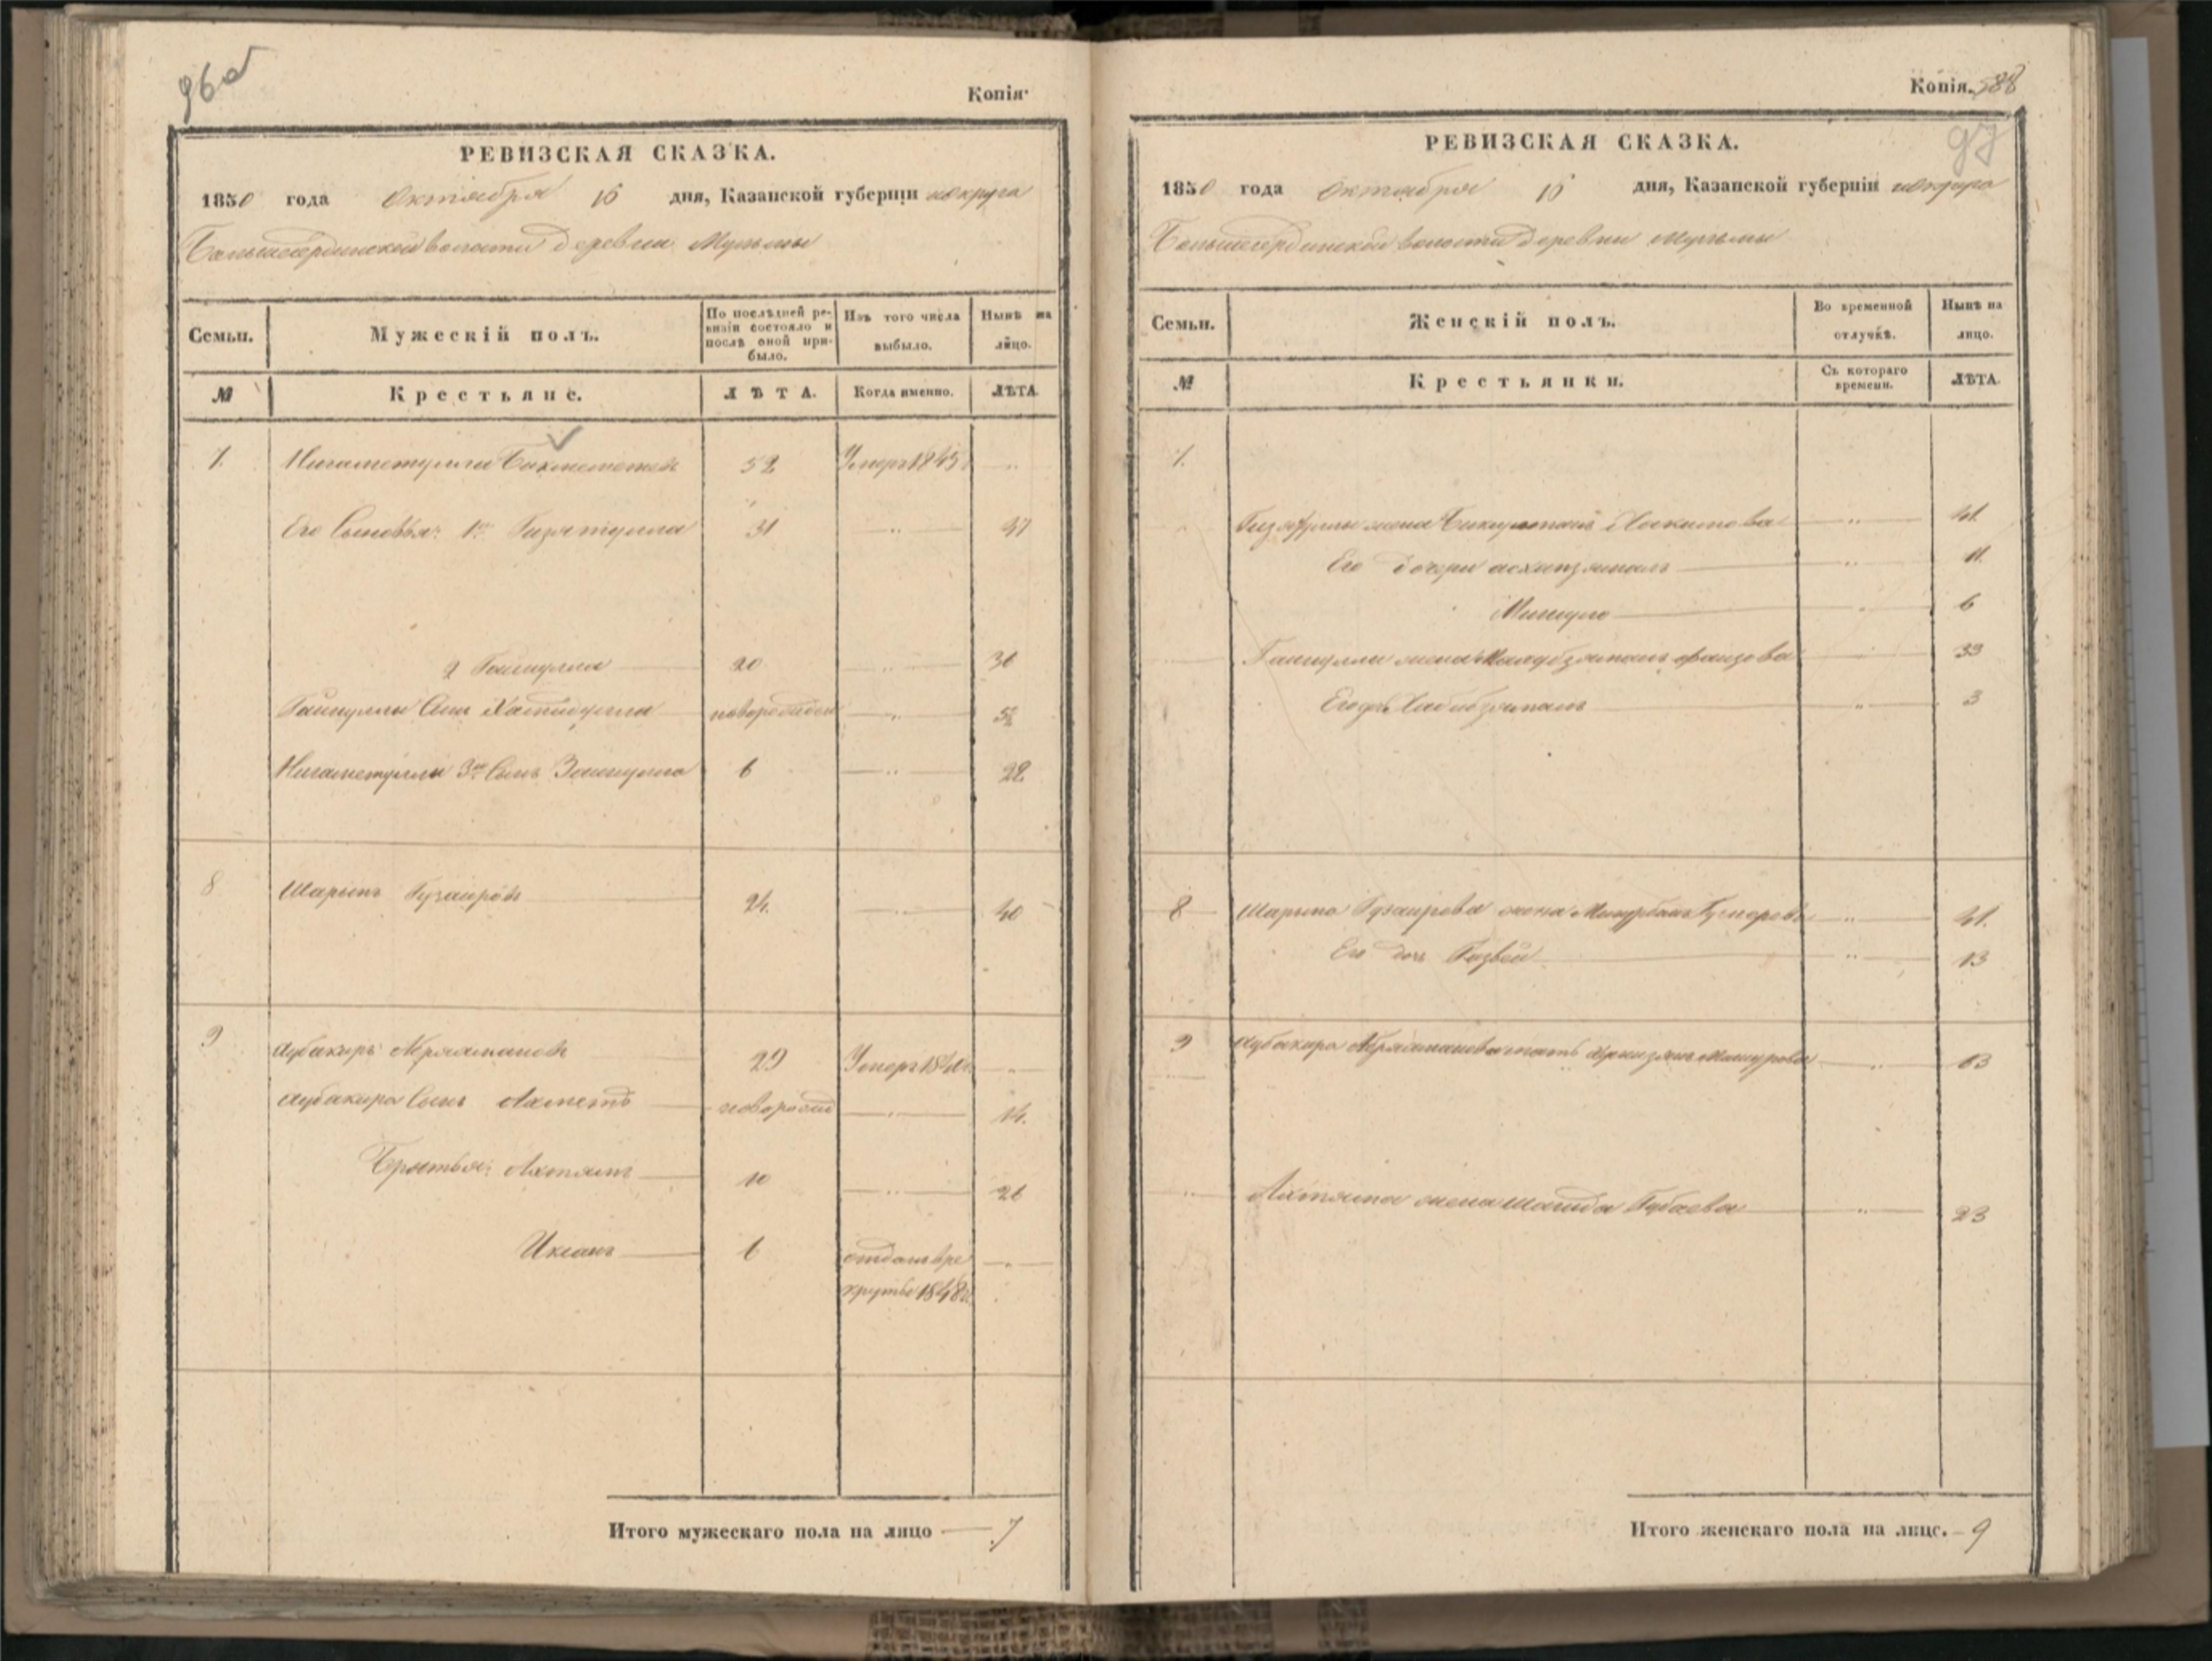 96об
Копія.
РЕВИЗСКАЯ СКАЗКА.
1850 года Октября 16 дня, Казанской губерніи и округа
Большесердинской волости деревни Мульмы
Семьи.
Мужескій полъ.
По послѣдней ревизіи состояло и послѣ оной прибыло.
Изъ того числа выбыло.
Нынѣ на лицо.
№
Крестьяне.
ЛѢТА.
Когда именно.
ЛѢТА.
7. Нигаметулла Бикметовъ 52 Умеръ 1845
Его Сыновья: 1й Гизятулла 31 47
2 Гайнулла 20 36
Гайнуллы Сынъ новорожден
Нигаметуллы 3й Сынъ Зайнулла 6 22
8 Шарыпъ Гузаировъ 24. 40
9 Аубакиръ 29 Умеръ
Аубакира Сынъ Ахметъ новорожд 14.
Братья: Ахтямъ 10 26
Иксанъ 6 отданъ в ре
круты 1848г.
Итого мужескаго пола на лицо 7
Копія. 588
97
РЕВИЗСКАЯ СКАЗКА.
1850 года Октября 16 дня, Казанской губерніи и округа
Большесердинской волости деревни Мульмы
Семьи.
Женскій полъ.
Во временной отлучкѣ.
Нынѣ на лицо.
№
Крестьянки.
Съ котораго времени.
ЛѢТА.
7.
Гизятуллы жена Хакимова 41
Его дочери 11.
6
Гайнуллы жена Фаизова 33
Его дочь Хабибзямалъ 3
8 Шарыпа Гузаирова жена 41.
Его дочь 13
9 Аубакира мать 63
Ахтяма жена Шагида Губаева 23
Итого женскаго пола на лице. 9